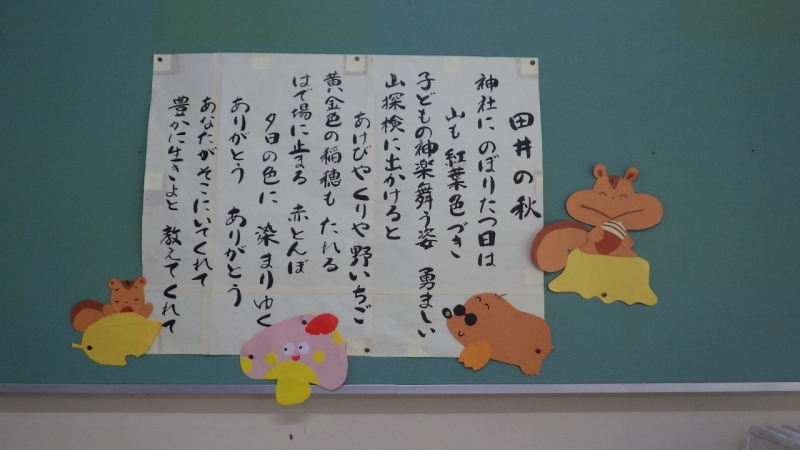 田井の秋
神社に のぼりたつ日は
山も 紅葉色づき
子どもの神楽舞う姿 勇ましい
山探検に出かけると
あけびやくりや野いちご
黄金色の稲穂も たれる
はで場に止まる 赤とんぼ
夕日の色に 染まりゆく
ありがとう ありがとう
あなたがそこにいてくれて
豊かに生きよと 教えてくれて